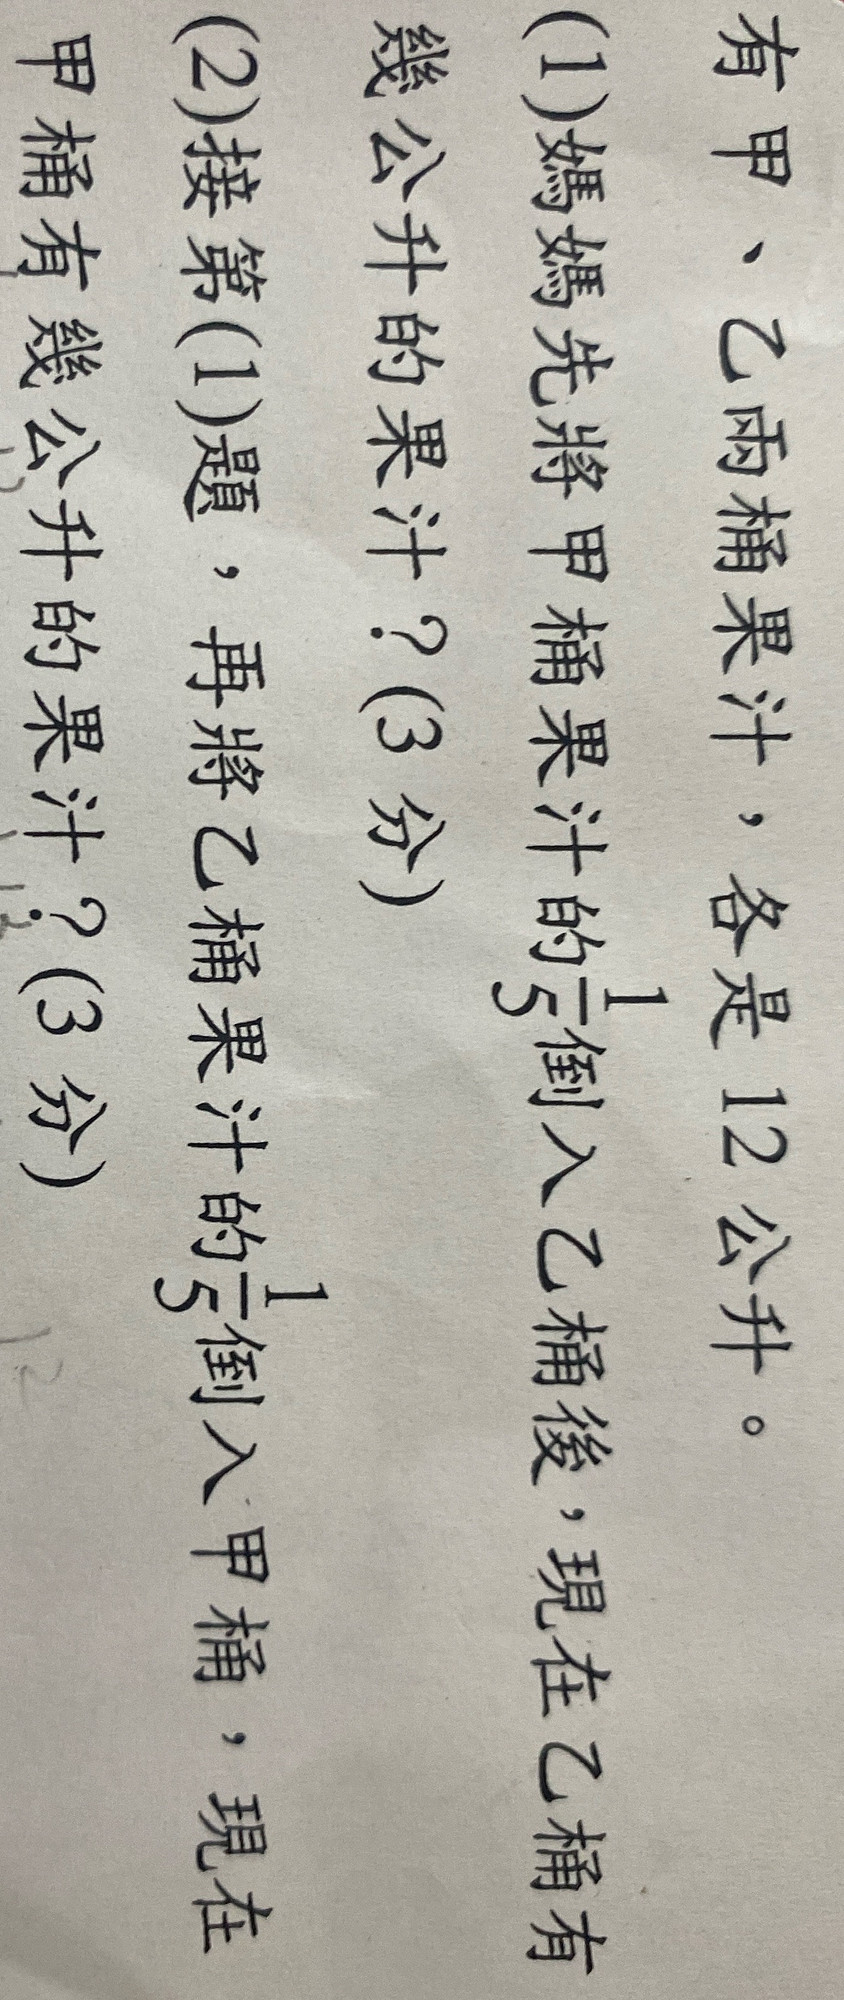 有甲、乙兩桶果汁，各是12公升。
(1)媽媽先將甲桶果汁的1/5倒入乙桶後，現在乙桶有
幾公升的果汁？(3分)
(2)接第(1)題，再將乙桶果汁的1/5倒入甲桶，現在
甲桶有幾公升的果汁？(3分)